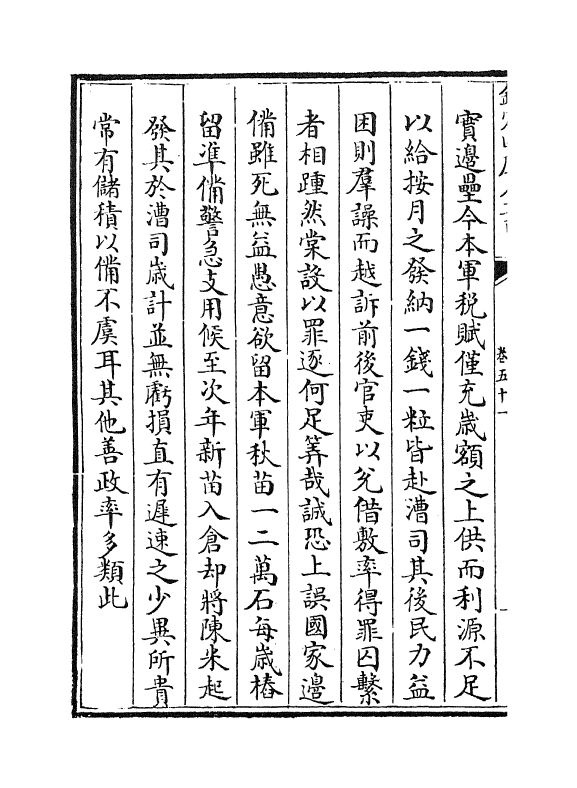 實邊壘今本軍税賦僅充嵗額之上供而利源不足
以給按月之發納一錢一粒皆赴漕司其後民力益
困則羣譟而越訴前後官吏以兊借敷率得罪囚繫
者相踵然棠設以罪逐何足筭哉誠恐上誤國家邊
備雖死無益愚意欲留本軍秋苗一二萬石每嵗樁
留準備警急支用候至次年新苗入倉却將陳米起
發其於漕司嵗計並無虧損直有遲速之少異所貴
常有儲積以備不虞耳其他善政率多類此
卷五十一